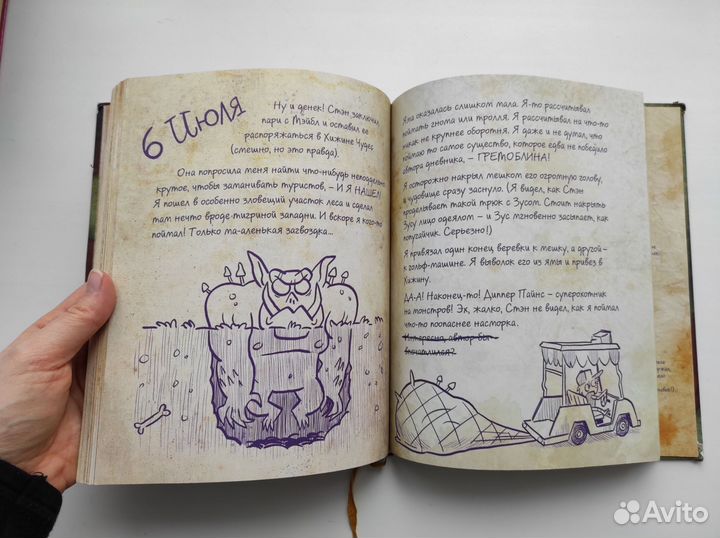 6 Июля
Ну и денек! Стэн заключил
пари с Мэйбл и оставил ее
распоряжаться в Хижине Чудес
(смешно, но это правда).
Она попросила меня найти что-нибудь неподдельно
крутое, чтобы заманивать туристов, – И Я НАШЕЛ!
Я пошел в особенно зловещий участок леса и сделал
там нечто вроде тигриной западни. И вскоре я кого-то
поймал! Только ма-аленькая загвоздка...
Яма оказалась слишком мала. Я-то рассчитывал
поймать гнома или тролля. Я рассчитывал на что-то
никак не крупнее оборотня. Я даже и не думал, что
поймаю то самое существо, которое едва не победило
автора дневника, – ГРЕМОБЛИНА!
Я осторожно накрыл мешком его огромную голову,
и чудовище сразу заснуло. (Я видел, как Стэн
проделывает такой трюк с Зусом. Стоит накрыть
Зусу лицо одеялом – и Зус мгновенно засыпает, как
попугайчик. Серьезно!)
Я привязал один конец веревки к мешку, а другой –
к гольф-машине. Я выволок его из ямы и привез в
Хижину.
ДА-А! Наконец-то! Диппер Пайнс – суперохотник
на монстров! Эх, жалко, Стэн не видел, как я поймал
что-то поопаснее насморка.
Интересно, автор бы
впечатлился?
Avito